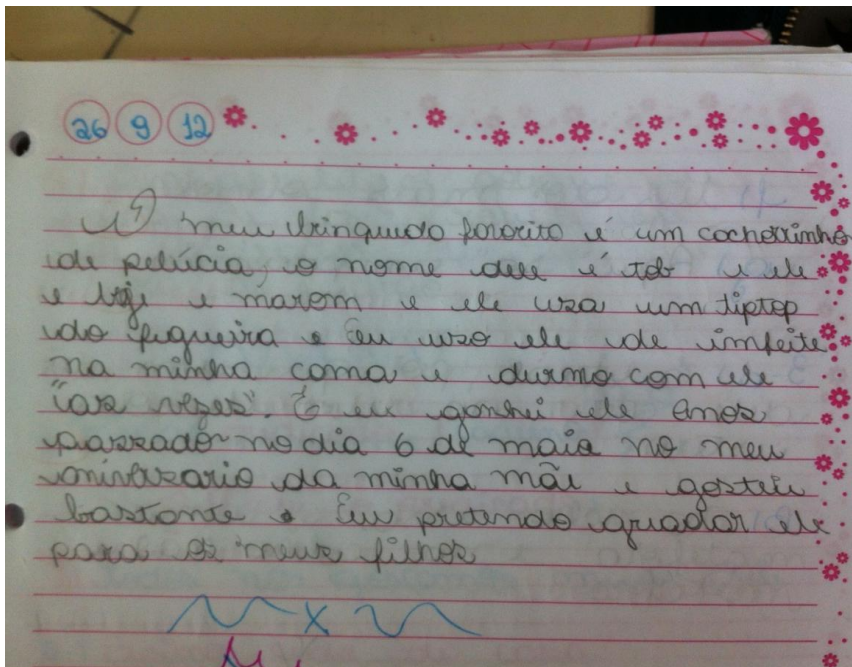 26 9 12
O meu brinquedo favorito é um cachorrinho
de pelúcia, o nome dele é tob e ele
e bije e marom e ele usa um tiptop
do figueira e Eu uso ele de imfeite
na minha cama e durmo com ele
"as vezes". E eu ganhei ele Anos
passados no dia 6 de maio no meu
aniversario da minha mãe e gostei
bastante e Eu pretendo guadar ele
para os meus filhos
x